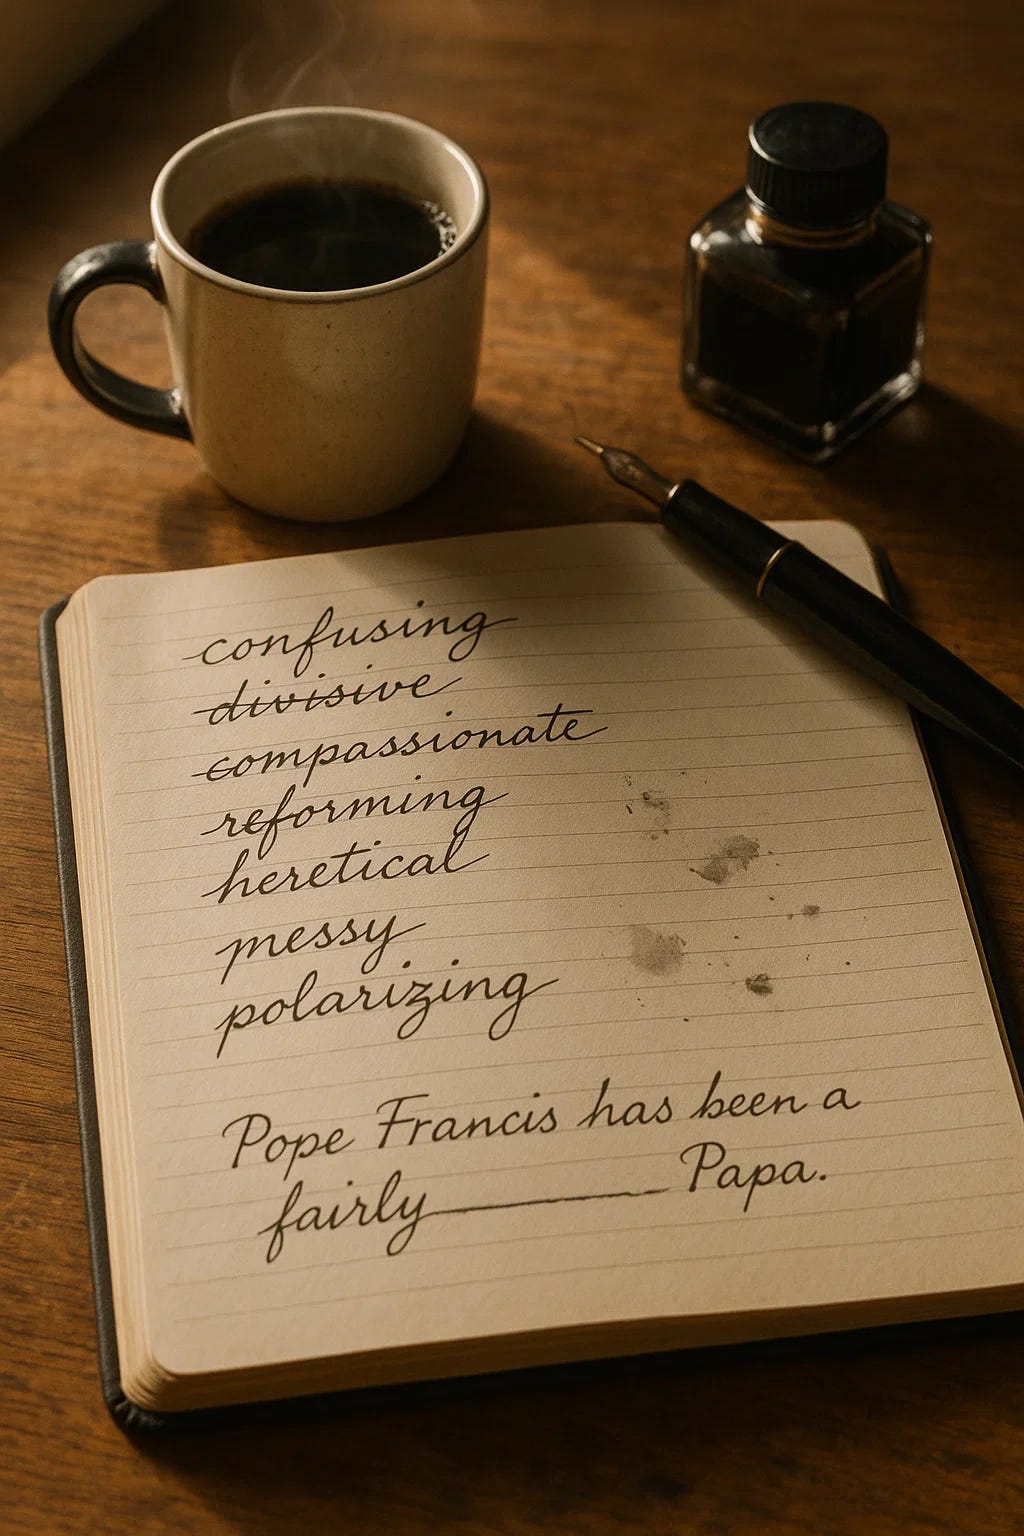 confusing
divisive
compassionate
reforming
heretical
messy
polarizing
Pope Francis has been a
fairly______ Papa.